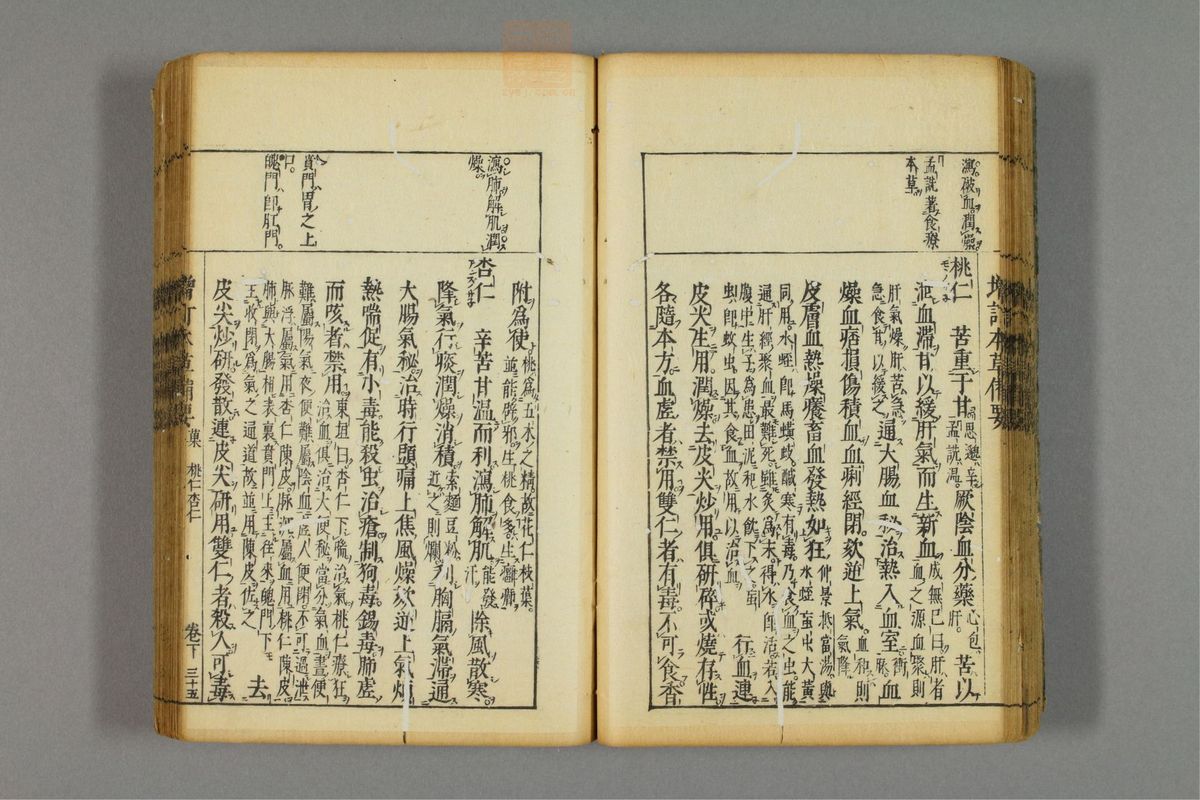 瀉破血潤燥
孟詵著食療
本草
桃仁 苦重于甘 思邈辛 孟詵溫 厥陰血分藥 心包肝 苦以
泄血滯甘以緩肝氣而生新血 成無已曰肝者血之源血聚則
肝氣燥肝苦急急食甘以緩之 通大腸血秘治熱入血室 衝脈 血
燥血痞損傷積血血痢經閉欬逆上氣 血和則氣降
皮膚血熱燥癢畜血發熱如狂 仲景抵當湯與水蛭䖟虫大黃
同用水蛭即馬蟥蚑鹹寒有毒乃食血之虫能
通肝經聚血最難死雖炙為末得水即活若入
腹中生子為患田泥和水飲下之䖟
虫即蚊虫因其食血故用以治血 行血連
皮尖生用潤燥去皮尖炒用俱研碎或燒存性
各隨本方血虛者禁用雙仁者有毒不可食香
瀉肺解肌潤
燥
賁門胃之上
口
魄門即肛門
附為使 桃為五木之精故花仁枝葉並能辟邪生桃食多生癰癤
杏仁 辛苦甘溫而利瀉肺解肌 能發汗 除風散寒
降氣行痰潤燥消積 索麵豆粉近之則爛 利胸膈氣滯通
大腸氣秘治時行頭痛上焦風燥欬逆上氣煩
熱喘促有小毒能殺虫治瘡制狗毒錫毒肺虛
而咳者禁用 東垣曰杏仁下喘治氣桃仁療狂治血俱治大便秘當分氣血晝便
難屬陽氣夜便難屬陰血虛人便閉不可過泄
脉浮屬氣用杏仁陳皮脉沉屬血用桃仁陳皮
肺與大腸相表裏賁門上主往來魄門下
主收閉為氣之通道故並用陳皮佐之 去
皮尖炒研發散連皮尖研用雙仁者殺人可毒
菓 桃仁 杏仁
卷下 三十五